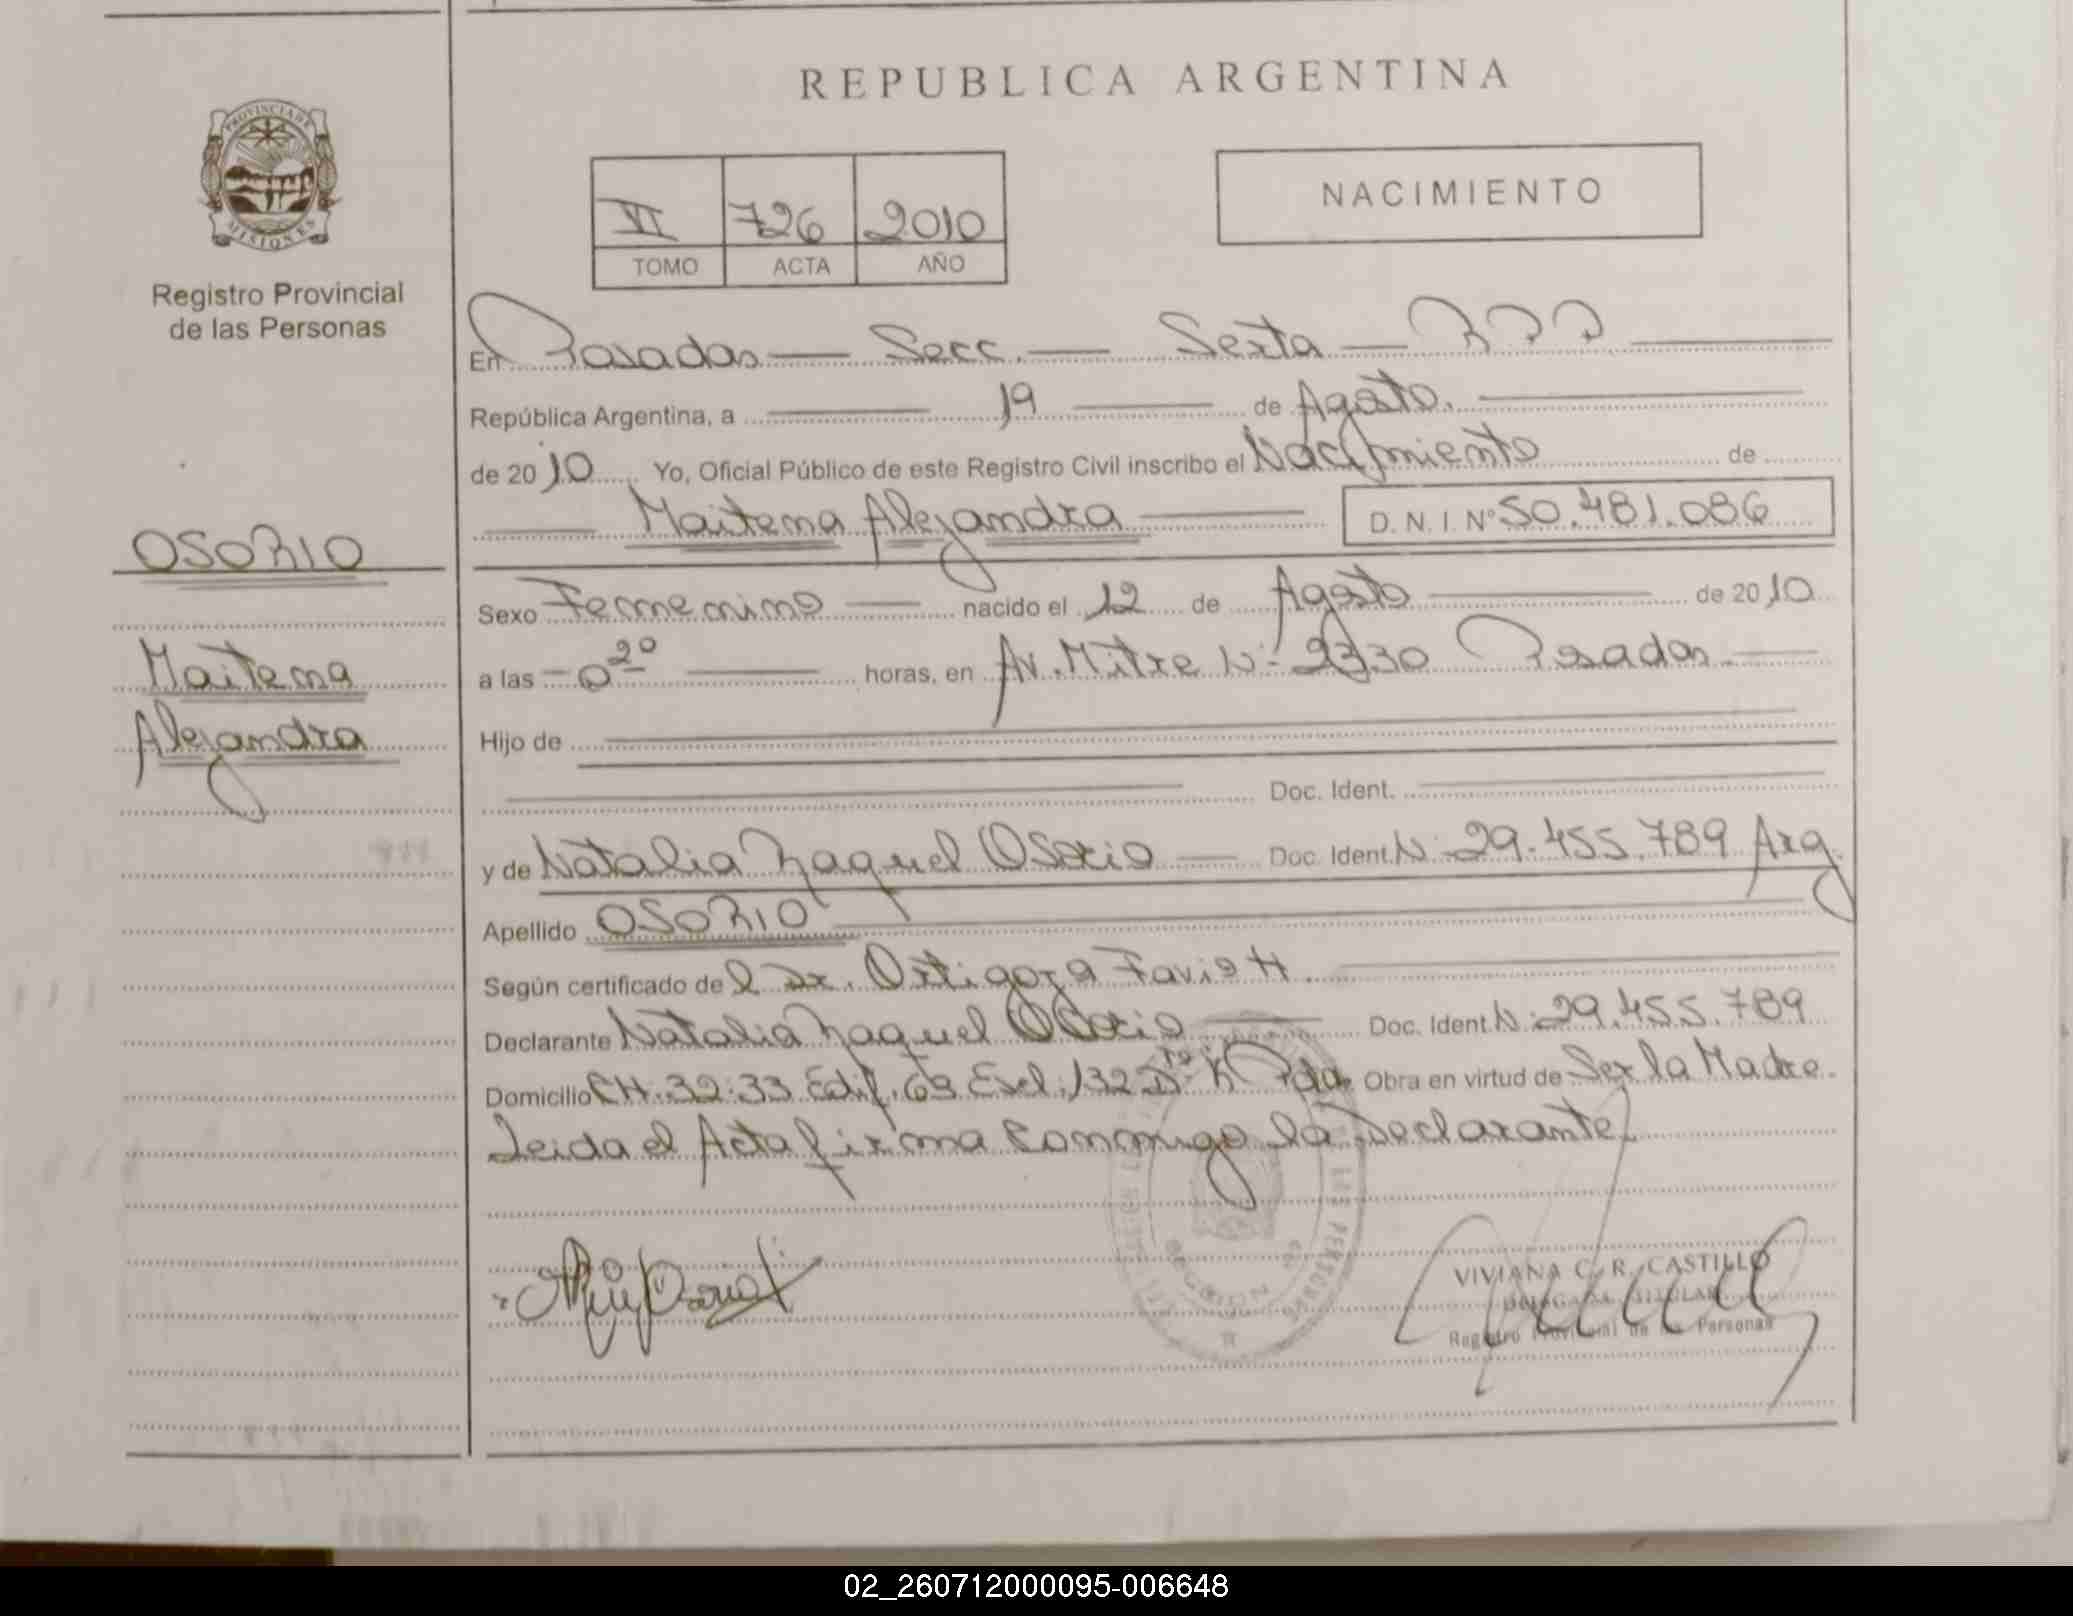 REPUBLICA ARGENTINA
PROVINCIA DE
MISIONES
Registro Provincial
de las Personas
NACIMIENTO
VI 726 2010
TOMO ACTA AÑO
En Posadas — Secc. — Sexta — RPP
República Argentina, a 19 de Agosto.
de 2010 Yo, Oficial Público de este Registro Civil inscribo el Nacimiento de
Maitena Alejandra D.N.I. Nº 50.481.086
OSORIO
Maitena
Alejandra
Sexo Femenino — nacido el 12 de Agosto de 2010
a las — 0 20 horas, en Av. Mitre Nº 2330 Posadas
Hijo de
Doc. Ident.
y de Natalia Raquel Osorio — Doc. Ident. Nº 29.455.789 Arg.
Apellido OSORIO
Según certificado del Dr. Ortigoza Favio H
Declarante Natalia Raquel Osorio — Doc. Ident. Nº 29.455.789
Domicilio CH. 32-33 Edif. 63 Esc. 132 Obra en virtud de Ser la Madre.
Leida el Acta firma Conmigo la Declarante.
VIVIANA C. R. CASTILLO
DELEGADA TITULAR
Registro Provincial de las Personas
02_260712000095-006648